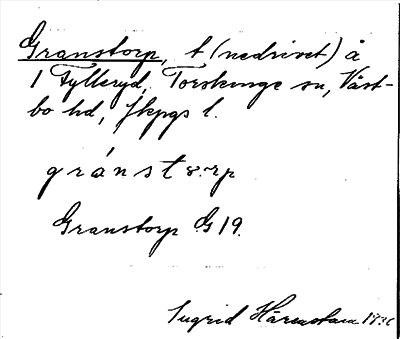 Granstorp, t (nedrivet) å
1 Fylleryd, Torskinge sn, Väst-
bo hd, Jkpgs l.
gránstɔrp
Granstorp G 19.
Ingrid Härenstam 1936